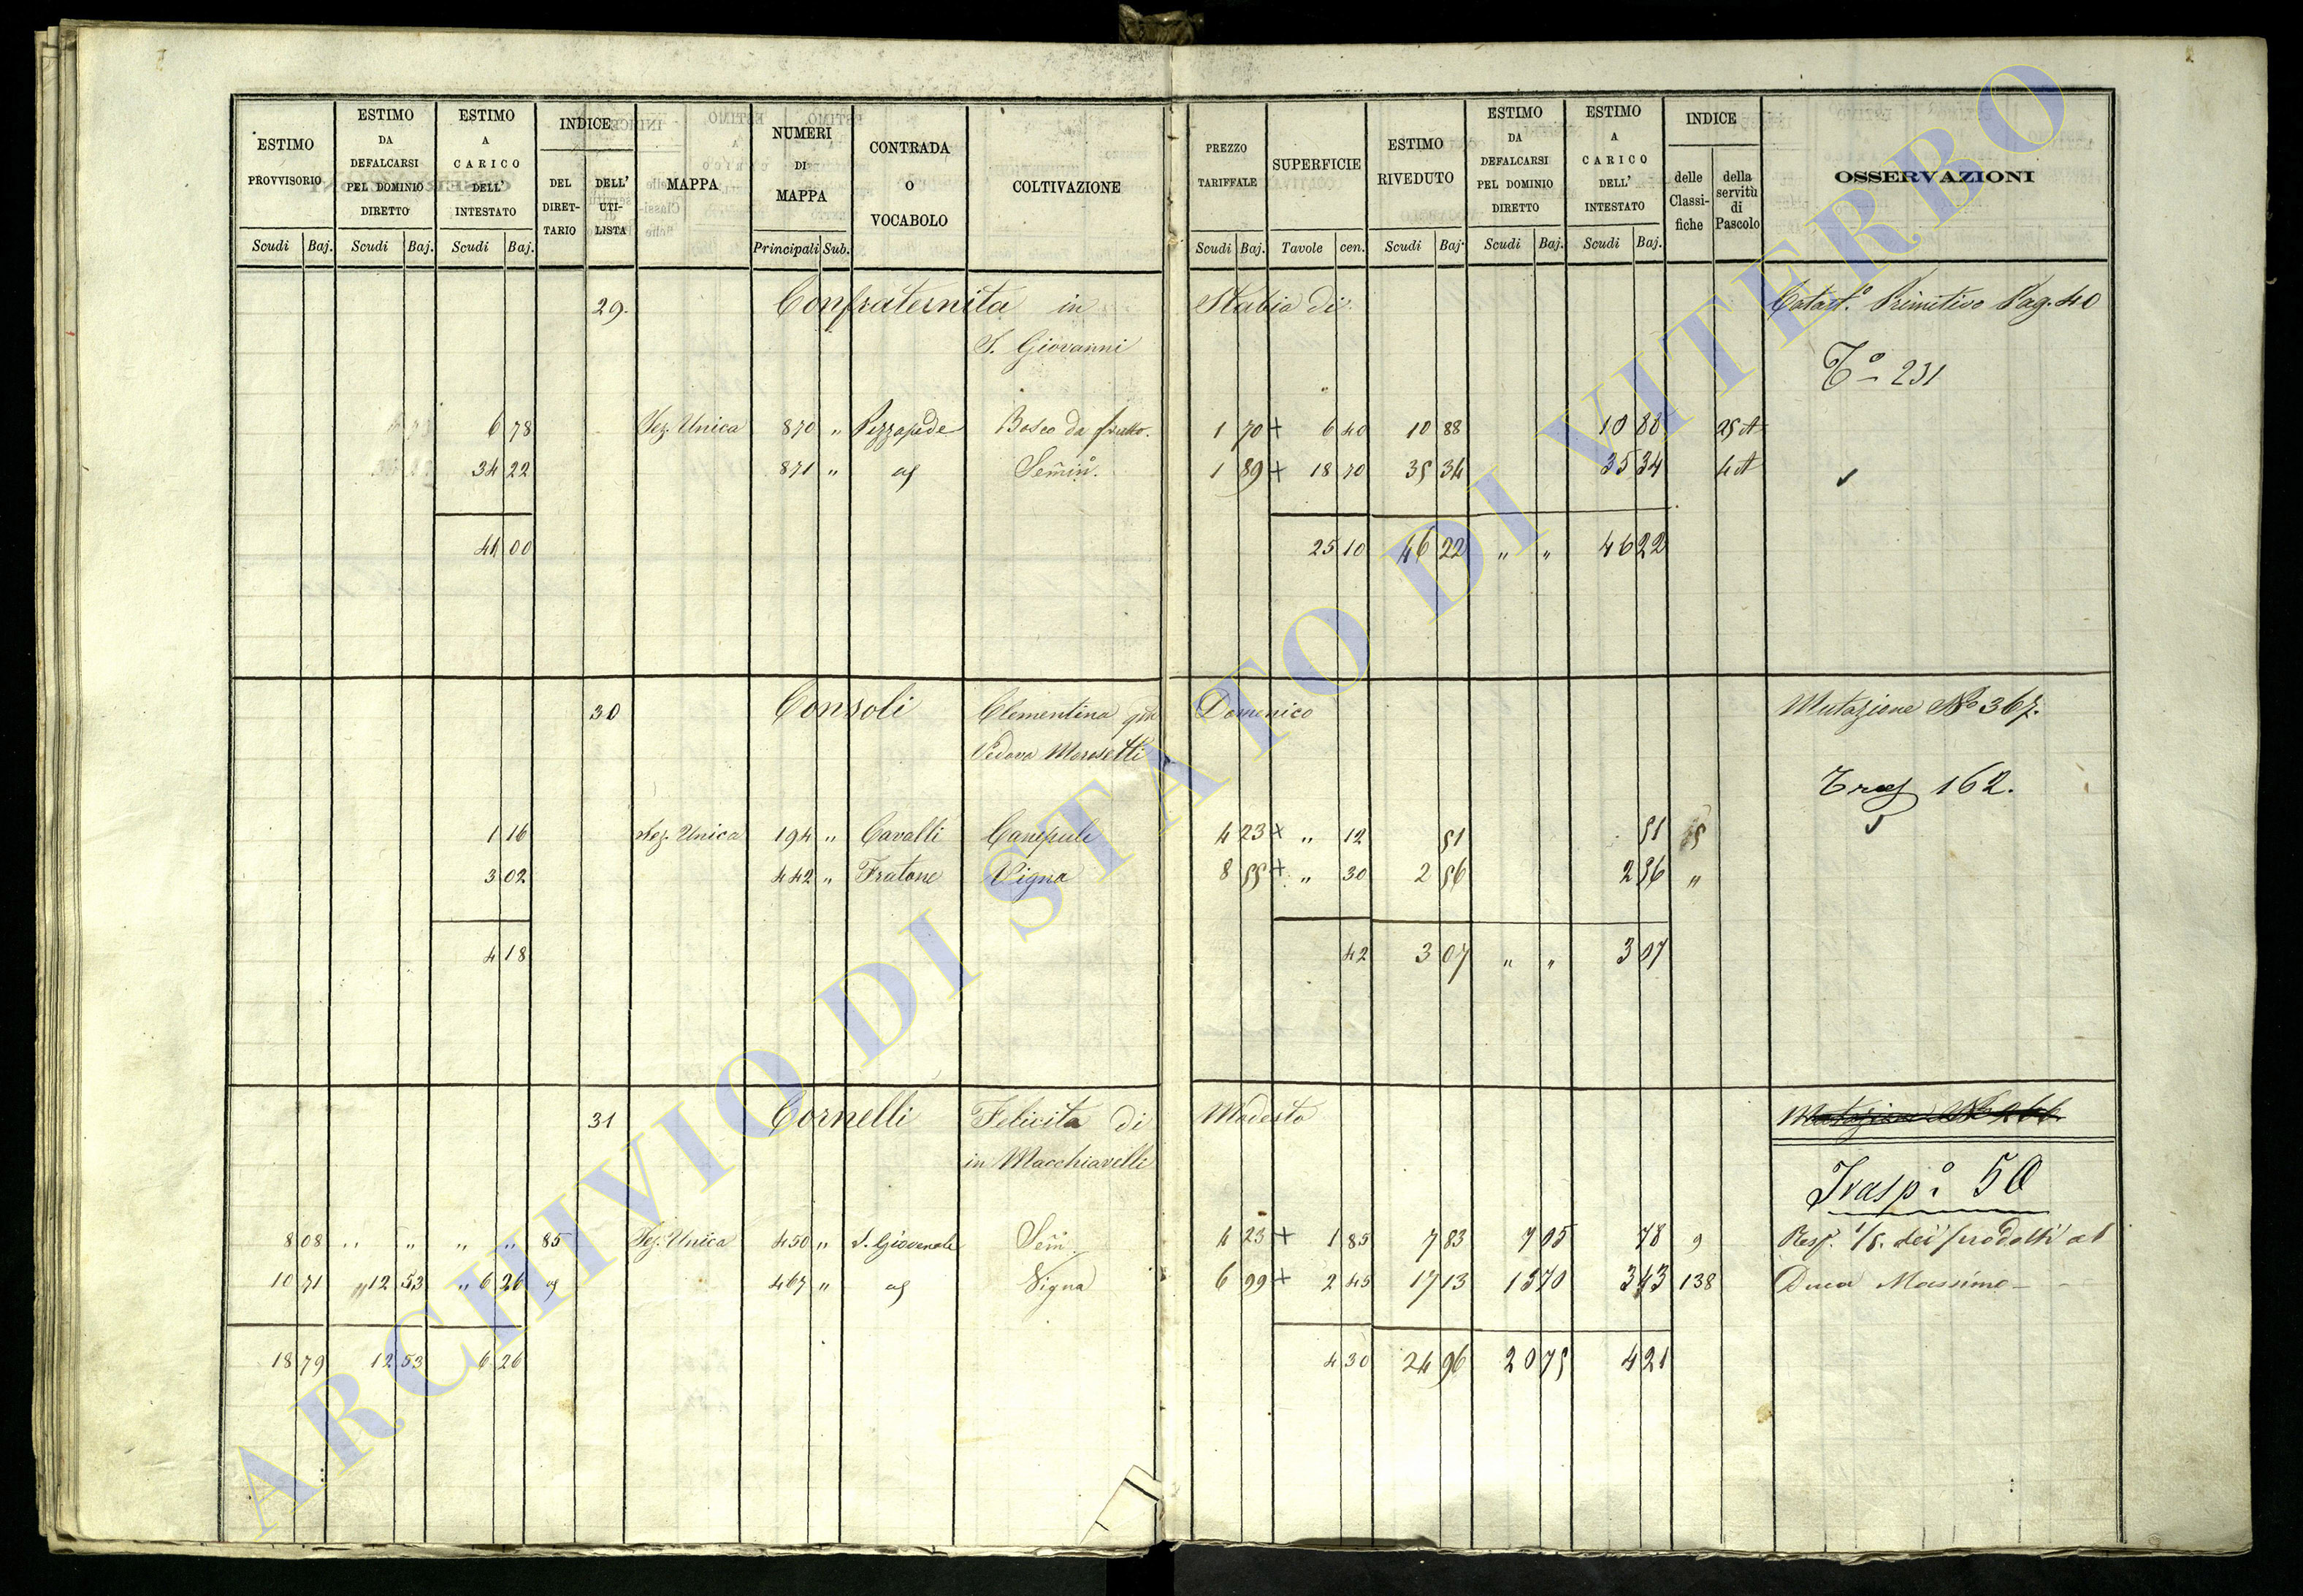 ESTIMO PROVVISORIO | ESTIMO DA DEFALCARSI PEL DOMINIO DIRETTO | ESTIMO A CARICO DELL' INTESTATO | INDICE | MAPPA | NUMERI DI MAPPA | CONTRADA O VOCABOLO | COLTIVAZIONE | PREZZO TARIFFALE | SUPERFICIE | ESTIMO RIVEDUTO | ESTIMO DA DEFALCARSI PEL DOMINIO DIRETTO | ESTIMO A CARICO DELL' INTESTATO | INDICE | OSSERVAZIONI
DEL DIRET-TARIO | DELL' UTI-LISTA | delle Classi-fiche | della servitù di Pascolo
Scudi Baj. | Scudi Baj. | Scudi Baj. | Principali Sub. | Scudi Baj. | Tavole cen. | Scudi Baj. | Scudi Baj. | Scudi Baj.
29. Confraternita in Stabia di Catast.º Primitivo Pag. 40
S. Giovanni
Tº 231
6 78 Sez. Unica 870 " Pizzapide Bosco da frutto. 1 70 + 6 40 10 88 10 88 25 A
34 22 871 " 1 89 + 18 70 35 34 35 34 4 A
41 00 25 10 46 22 " " 46 22
30 Consoli Clementina qm Domenico Mutazione Nº 367.
Vedova Morosetti
162.
1 16 Sez. Unica 194 " Cavalli Canepule 4 23 + " 12 51 51
3 02 442 " Fratone Vigna 8 55 + " 30 2 56 2 56 "
4 18 42 3 07 " " 3 07
31 Cornelli Felicita di Modesto Mutazione Nº 266
in Macchiavelli
Trasp.º 50
8 08 " " " " 85 Sez. Unica 450 " S. Giovenale Sem. 4 23 + 1 85 7 83 7 05 78 9 Resp. 1/5. dei prodotti al
10 71 " 12 53 " 6 26 467 " Vigna 6 99 + 2 45 17 13 13 70 3 43 138 Duca Massimo
18 79 12 53 6 26 4 30 24 96 20 75 4 21
ARCHIVIO DI STATO DI VITERBO